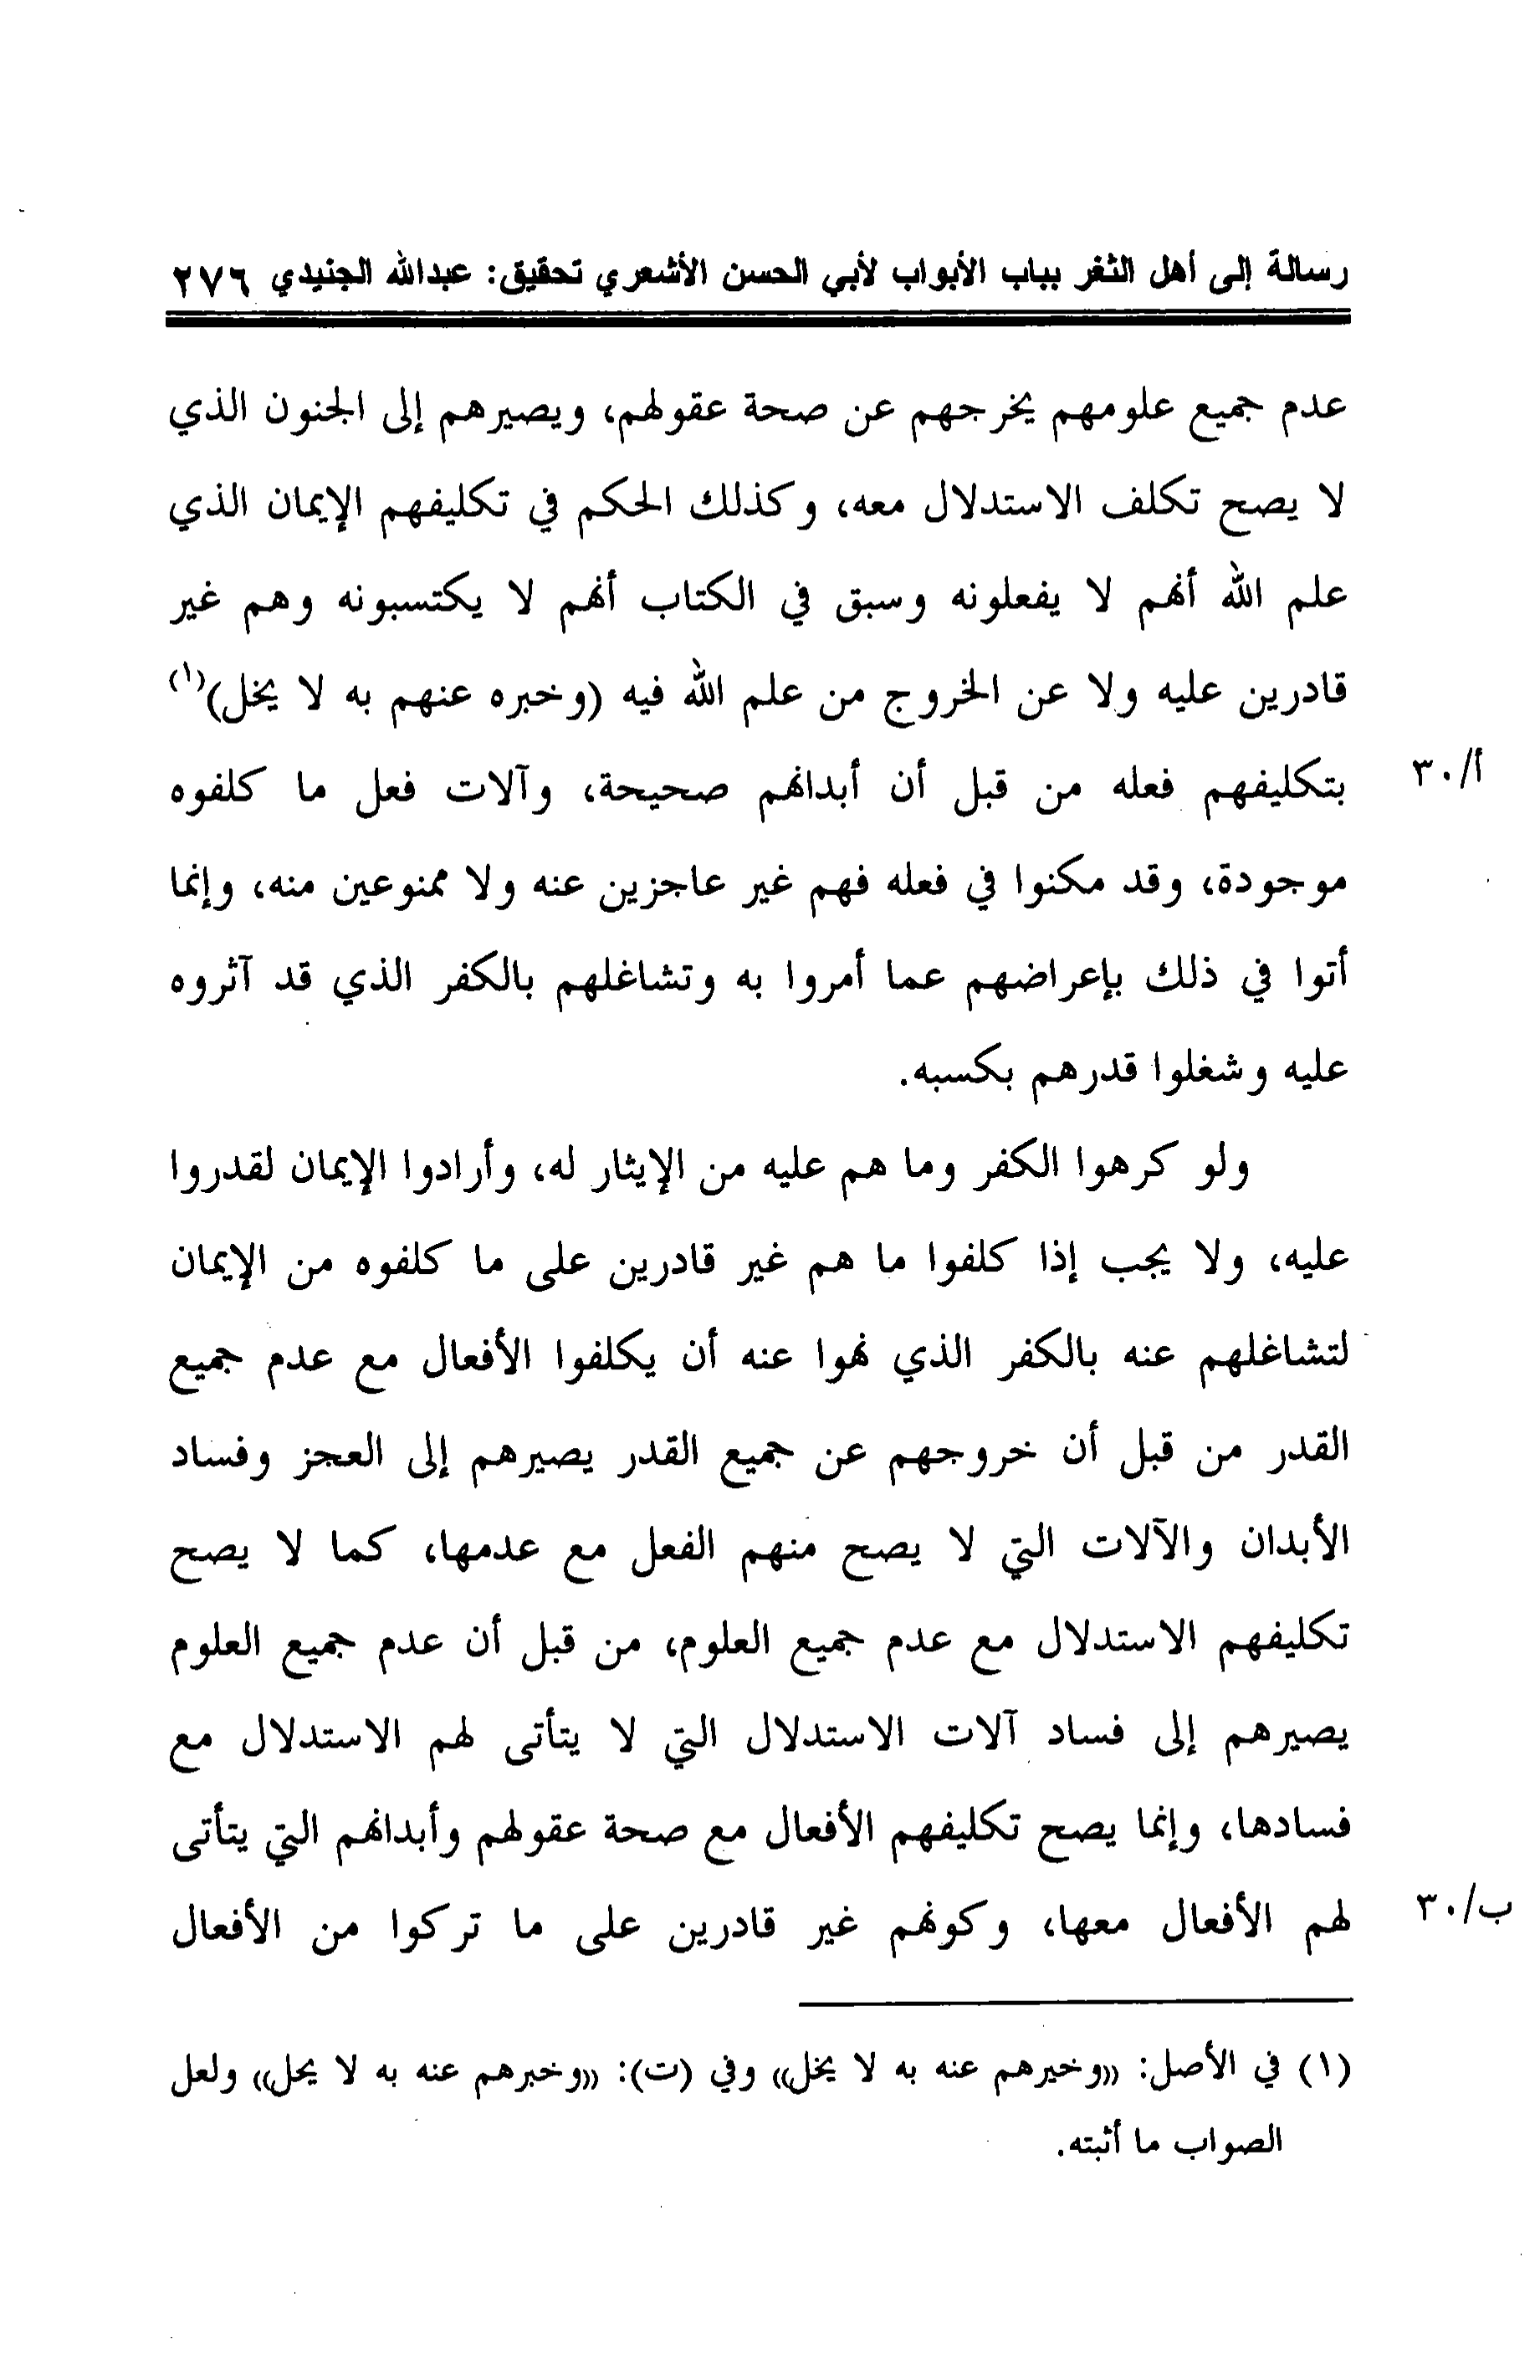 رسالة إلى أهل الثغر بباب الأبواب لأبي الحسن الأشعري تحقيق: عبدالله الجنيدي ٢٧٦
عدم جميع علومهم يخرجهم عن صحة عقولهم، ويصيرهم إلى الجنون الذي
لا يصح تكلف الاستدلال معه، وكذلك الحكم في تكليفهم الإيمان الذي
علم الله أنهم لا يفعلونه وسبق في الكتاب أنهم لا يكتسبونه وهم غير
قادرين عليه ولا عن الخروج من علم الله فيه (وخبره عنهم به لا يخل)(١)
بتكليفهم فعله من قبل أن أبدانهم صحيحة، وآلات فعل ما كلفوه
أ/٣٠
موجودة، وقد مكنوا في فعله فهم غير عاجزين عنه ولا ممنوعين منه، وإنما
أتوا في ذلك بإعراضهم عما أمروا به وتشاغلهم بالكفر الذي قد آثروه
عليه وشغلوا قدرهم بكسبه.
ولو كرهوا الكفر وما هم عليه من الإيثار له، وأرادوا الإيمان لقدروا
عليه، ولا يجب إذا كلفوا ما هم غير قادرين على ما كلفوه من الإيمان
لتشاغلهم عنه بالكفر الذي نهوا عنه أن يكلفوا الأفعال مع عدم جميع
القدر من قبل أن خروجهم عن جميع القدر يصيرهم إلى العجز وفساد
الأبدان والآلات التي لا يصح منهم الفعل مع عدمها، كما لا يصح
تكليفهم الاستدلال مع عدم جميع العلوم، من قبل أن عدم جميع العلوم
يصيرهم إلى فساد آلات الاستدلال التي لا يتأتى لهم الاستدلال مع
فسادها، وإنما يصح تكليفهم الأفعال مع صحة عقولهم وأبدانهم التي يتأتى
لهم الأفعال معها، وكونهم غير قادرين على ما تركوا من الأفعال
ب/٣٠
(١) في الأصل: «وخيرهم عنه به لا يخل» وفي (ت): «وخبرهم عنه به لا يحل» ولعل
الصواب ما أثبته.